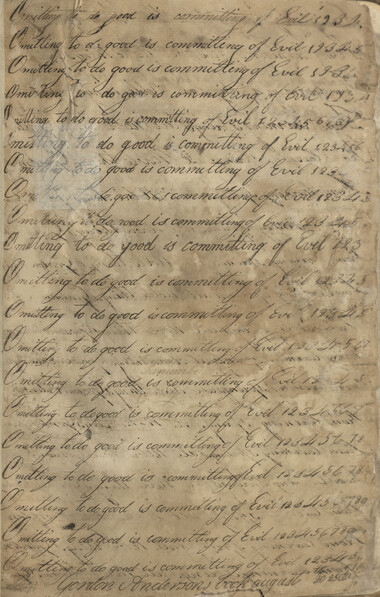 Omitting to do good is committing of Evil 1 2 3 4.
Omitting to do good is committing of Evil 1 2 3 4 5
Omitting to do good is committing of Evil 1 2 3 4
Omitting to do good is committing of Evil 1 2 3
Omitting to do good is committing of Evil 1 2 3 4 5 6
Omitting to do good is committing of Evil 1 2 3 4 5 6
Omitting to do good is committing of Evil 1 2 3
is committing of Evil 1 2 3 4 5
Omitting to do good is committing of Evil 1 2 3 4 5
Omitting to do good is committing of Evil 1 2 3
Omitting to do good is committing of Evil 1 2 3 4 5
Omitting to do good is committing of Evil 1 2 3 4 5
Omitting to do good is committing of Evil 1 2 3 4 5 6 7
Omitting to do good is committing of Evil 1 2 3 4 5
Omitting to do good is committing of Evil 1 2 3 4 5 6
Omitting to do good is committing of Evil 1 2 3 4 5 6 7 8
Omitting to do good is committing of Evil 1 2 3 4 5 6 7 8
Omitting to do good is committing of Evil 1 2 3 4 5 6 7 8 9 0
Omitting to do good is committing of Evil 1 2 3 4 5 6 7 8 9 0
Omitting to do good is committing of Evil 1 2 3 4 5
Gordon Andersons Book august